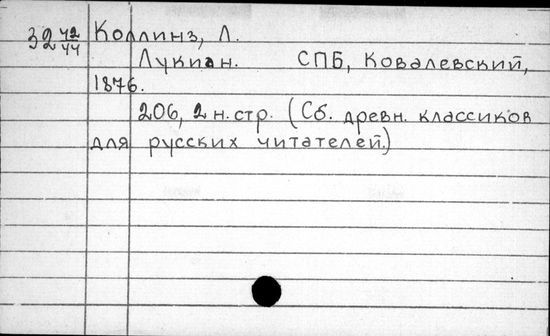 32 42/44 Коллинз, Л.
Лукиан. СПБ, Ковалевский,
1876.
206, 2 н. стр. (Сб. древн. классиков
для русских читателей.)